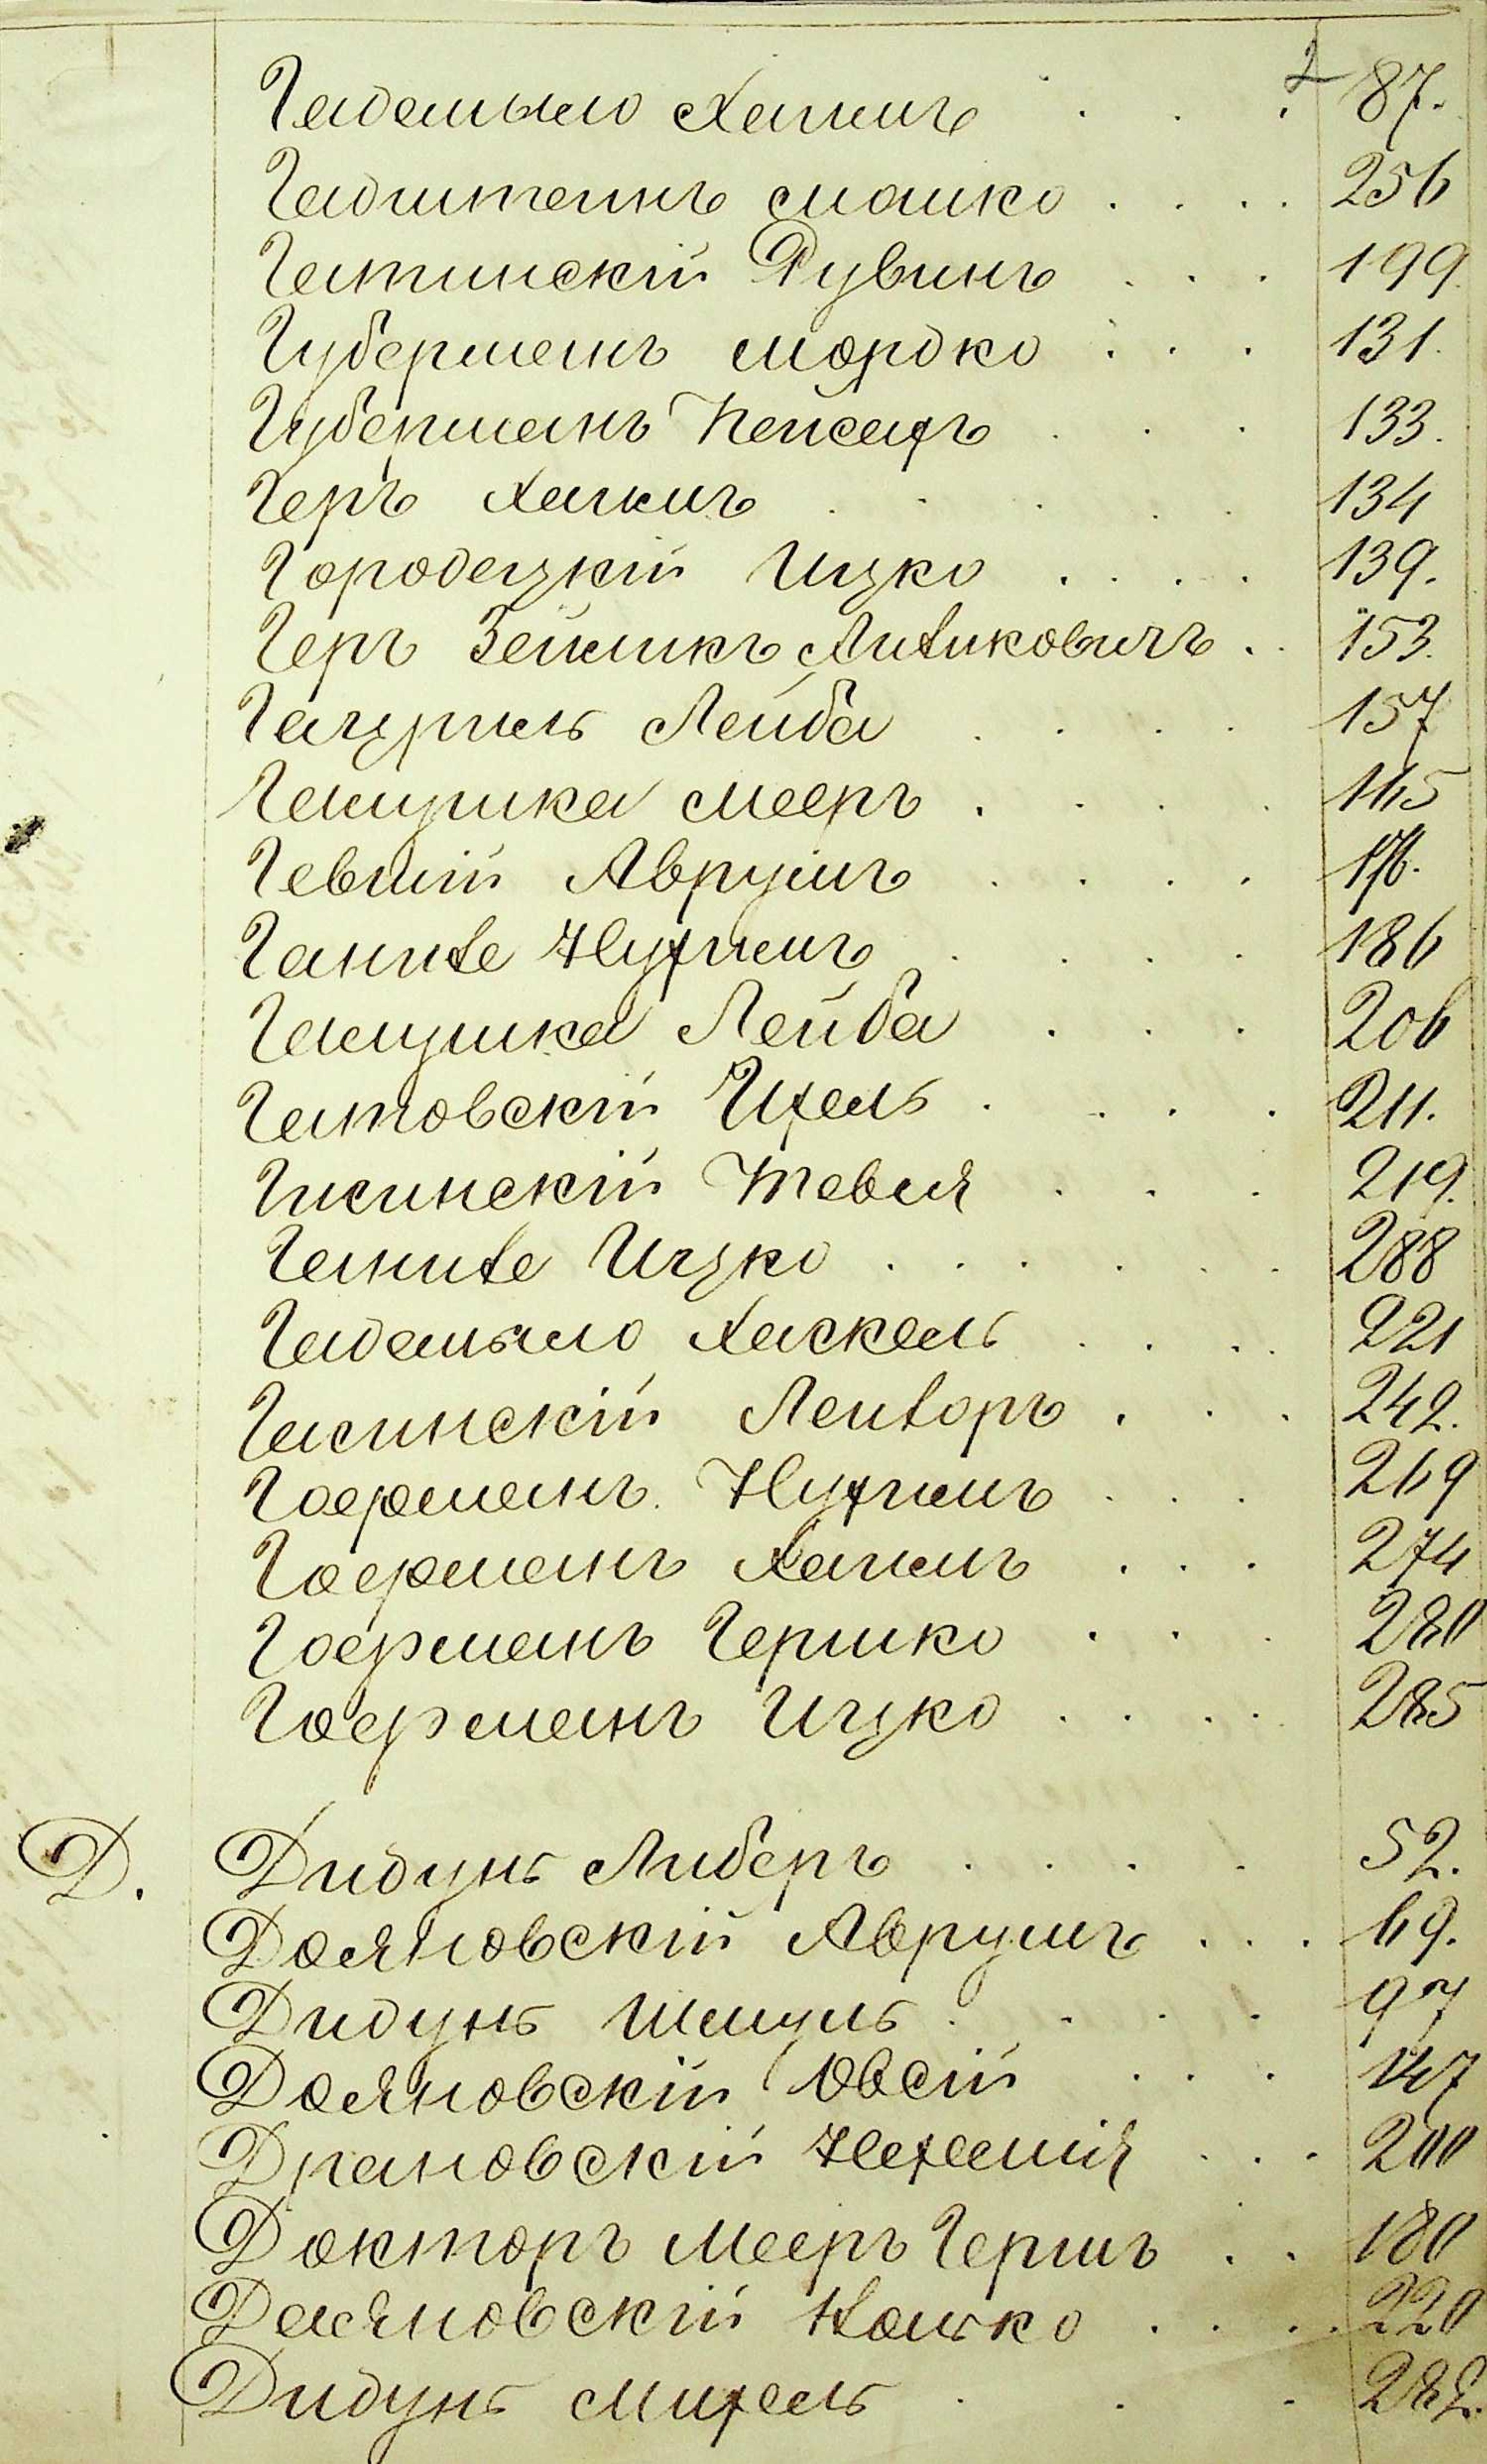 2
Гадемыло Хаимъ . . . 87.
Гадштеинъ Мошко . . . . 256
Гатинскій Рувинъ . . . 199.
Губерманъ Мордко . . . 131.
Губерманъ Пейсахъ . . . 133.
Геръ Хаимъ . . . . . 134
Городецкій Ицко . . . . 139.
Геръ Зейликъ Литиковичъ . . 153.
Лейба . . . . 157
Галушка Мееръ . . . . 165
Авруумъ . . . . 176.
Нухимъ . . . . 186
Галушка Лейба . . . 206
Гатовскій Ихель . . . . 211.
Гисинскій Тевель . . . 219.
Ицко . . . . . . 288
Гадемыло Хаскель . . . . 221
Гасинскій Лейзоръ . . . 242.
Гоерманъ Нухимъ . . . 269
Гоерманъ Хаимъ . . . 274
Гоерманъ Гершко . . . 280
Гоерманъ Ицко . . . . 285
Д. Дидунъ Либеръ . . . . 52.
Доляновскій Аврумъ . . . 69.
Дидунъ Шмуль . . . . 97
Доляновскій Овсій . . . 147
Драновскій Нехемія . . . 200
Докторъ Мееръ Гершъ . . 180
Даляновскій . . . . 220
Дидунъ Михель . . .